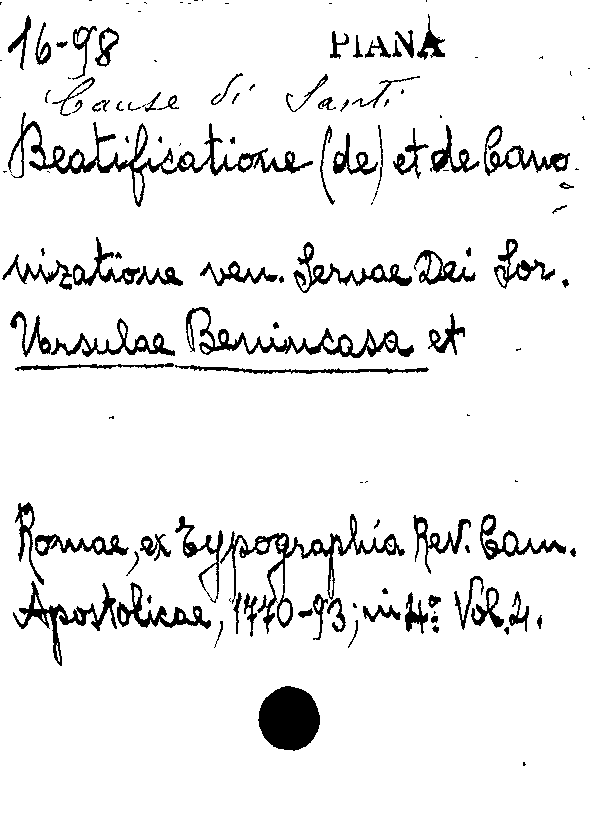 16-98 PIANA
Cause di Santi
Beatificatione (de) et de Cano=
nizatione ven. Servae Dei Sor.
Vorsulae Benincasa et
Romae, ex Typographia Rev. Cam.
Apostolicae, 1770-93; in 4º: Vol. 2.